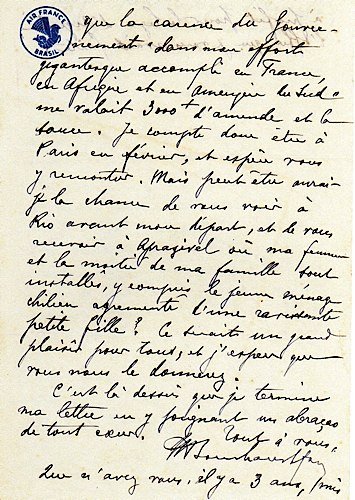 AIR FRANCE
BRASIL
que la carence du Gouver-
nement "dans mon effort
gigantesque accompli en France,
en Afrique et en Amérique du Sud"
me valait 3000 d'amende et le
Je compte donc être à
Paris en février, et espère vous
y rencontrer. Mais peut-être aurai-
je la chance de vous voir à
Rio avant mon départ, et de vous
recevoir à où ma femme
et la moitié de ma famille sont
installés, y compris le jeune ménage
chilien agrémenté d'une ravissante
petite fille? Ce serait un grand
plaisir pour tous, et j'espère que
vous nous le donnerez.
C'est là dessus que je termine
ma lettre en y joignant un abraços
de tout cœur.
Tout à vous,
Que n'avez vous, il y a 3 ans,